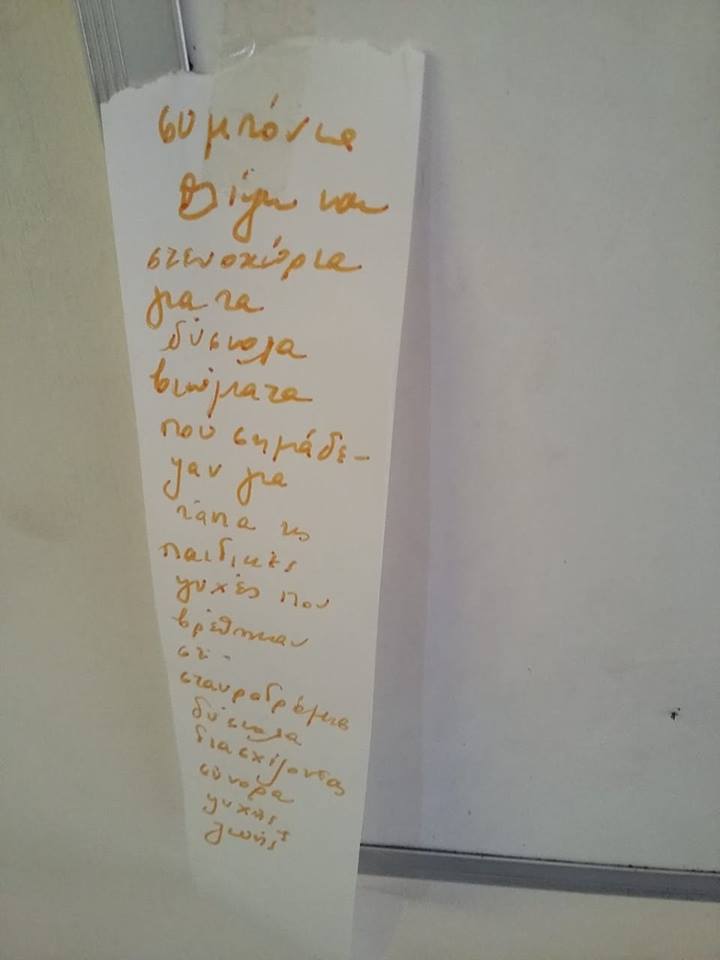 συμπόνια
θλίψη και
στενοχώρια
για τα
δύσκολα
βιώματα
που σημάδε-
ψαν για
πάντα τις
παιδικές
ψυχές που
βρέθηκαν
σε
σταυροδρόμια
δύσκολα
διασχίζοντας
σύνορα
ψυχής
ζωής